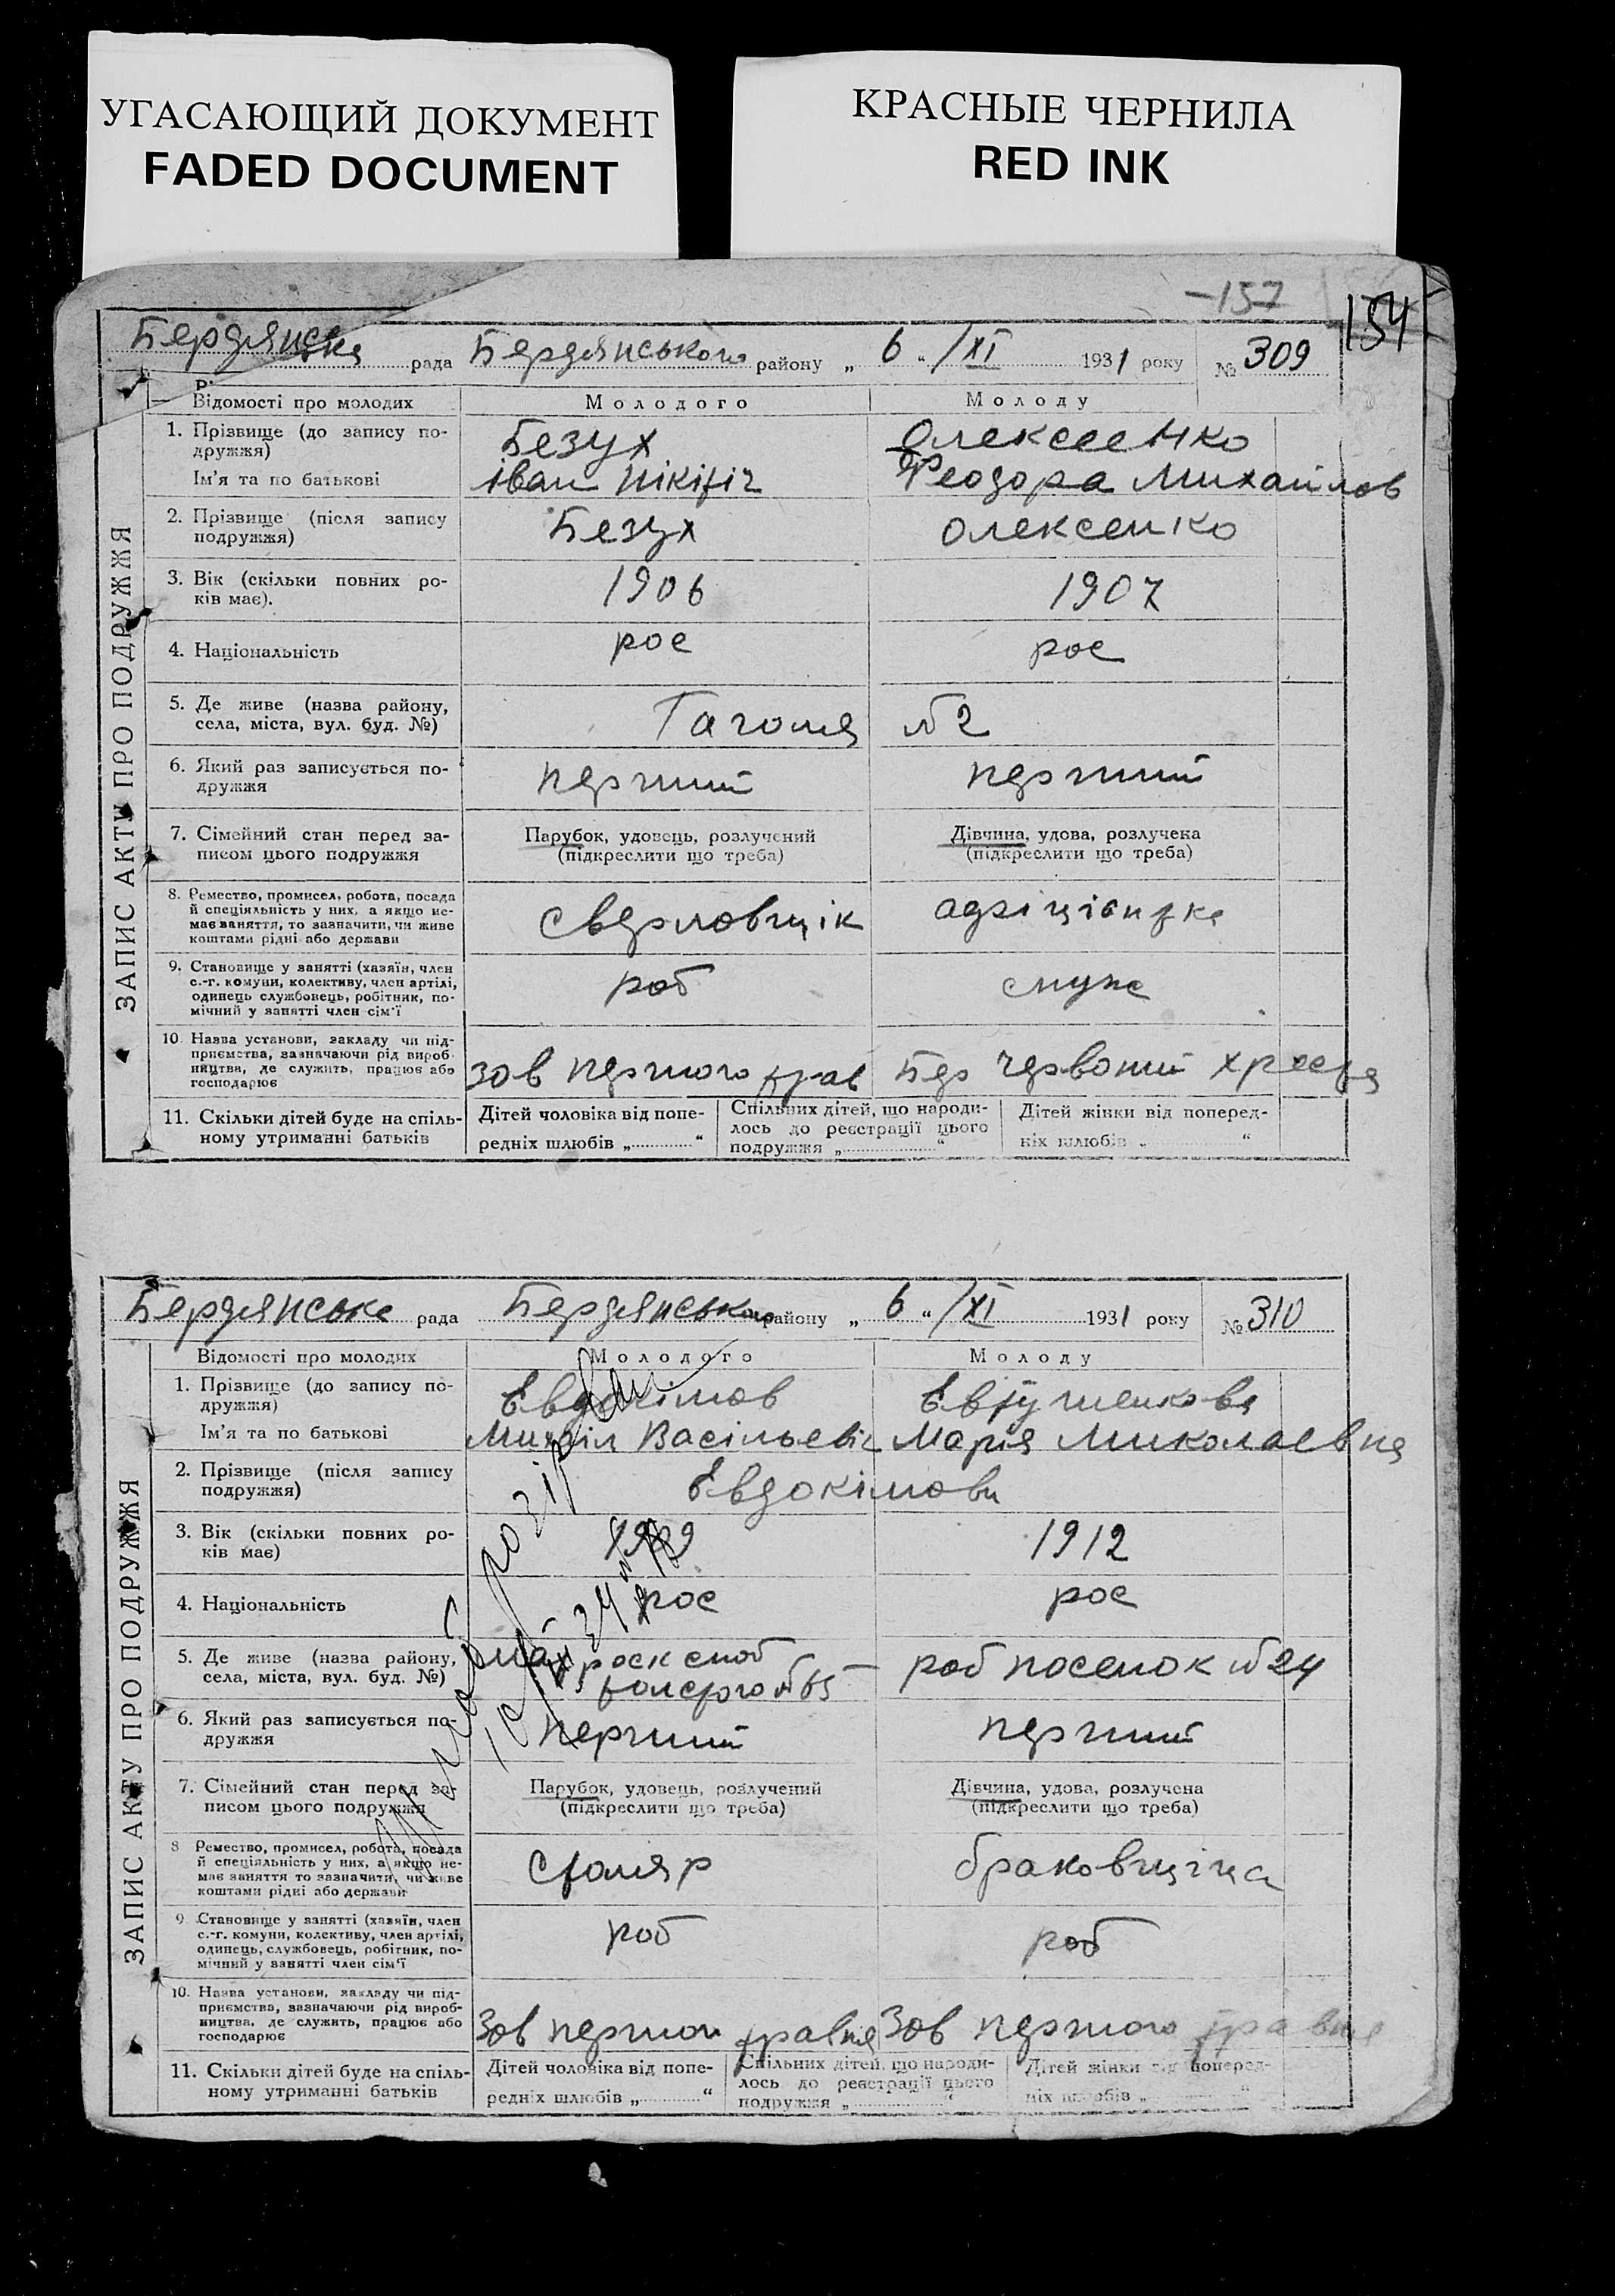 УГАСАЮЩИЙ ДОКУМЕНТ
FADED DOCUMENT
КРАСНЫЕ ЧЕРНИЛА
RED INK
-157
154
Бердянська рада Бердянського району „ 6 “ /XI 1931 року № 309
ЗАПИС АКТУ ПРО ПОДРУЖЖЯ
Відомості про молодих Молодого Молоду
1. Прізвище (до запису по-
дружжя) Безух Олексеенко
Ім'я та по батькові Іван Нікіфіч Феодора Михайлов
2. Прізвище (після запису
подружжя) Безух Олексенко
3. Вік (скільки повних ро-
ків має). 1906 1907
4. Національність рос рос
5. Де живе (назва району,
села, міста, вул. буд. №) Гоголя №2
6. Який раз записується по-
дружжя перший перший
7. Сімейний стан перед за-
писом цього подружжя
Парубок, удовець, розлучений
(підкреслити що треба)
Дівчина, удова, розлучена
(підкреслити що треба)
8. Ремество, промисел, робота, посада
й спеціяльність у них, а якщо не-
має заняття, то зазначити, чи живе
коштами рідні або держави
сверловщік
9. Становище у занятті (хазяїн, член
с.-г. комуни, колективу, член артілі,
одинець службовець, робітник, по-
мічний у занятті член сім'ї
роб служ
10. Назва установи, закладу чи під-
приємства, зазначаючи рід вироб-
ництва, де служить, працює або
господарює
Зов першого трав Бер Червоний хреста
11. Скільки дітей буде на спіль-
ному утриманні батьків
Дітей чоловіка від попе-
редніх шлюбів „ “
Спільних дітей, що народи-
лось до реєстрації цього
подружжя „ “
Дітей жінки від поперед-
ніх шлюбів „ “
Бердянська рада Бердянського району „ 6 “ /XI 1931 року № 310
ЗАПИС АКТУ ПРО ПОДРУЖЖЯ
Відомості про молодих Молодого Молоду
1. Прізвище (до запису по-
дружжя) Евдокімов Евтушенкова
Ім'я та по батькові Михаіл Васільевіч Марія Миколаевна
2. Прізвище (після запису
подружжя) Евдокімови
3. Вік (скільки повних ро-
ків має) 1909 1912
4. Національність рос рос
5. Де живе (назва району,
села, міста, вул. буд. №) роб поселок №24
6. Який раз записується по-
дружжя перший перший
7. Сімейний стан перед за-
писом цього подружжя
Парубок, удовець, розлучений
(підкреслити що треба)
Дівчина, удова, розлучена
(підкреслити що треба)
8 Ремество, промисел, робота, посада
й спеціяльність у них, а якщо не-
має заняття то зазначити, чи живе
коштами рідні або держави
столяр браковщіца
9 Становище у занятті (хазяїн, член
с.-г. комуни, колективу, член артілі,
одинець, службовець, робітник, по-
мічний у занятті член сім'ї
роб роб
10. Назва установи, закладу чи під-
приємства, зазначаючи рід вироб-
ництва, де служить, працює або
господарює
Зов першого травня Зов першого травня
11. Скільки дітей буде на спіль-
ному утриманні батьків
Дітей чоловіка від попе-
редніх шлюбів „ “
Спільних дітей, що народи-
лось до реєстрації цього
подружжя „ “
Дітей жінки від поперед-
ніх шлюбів „ “